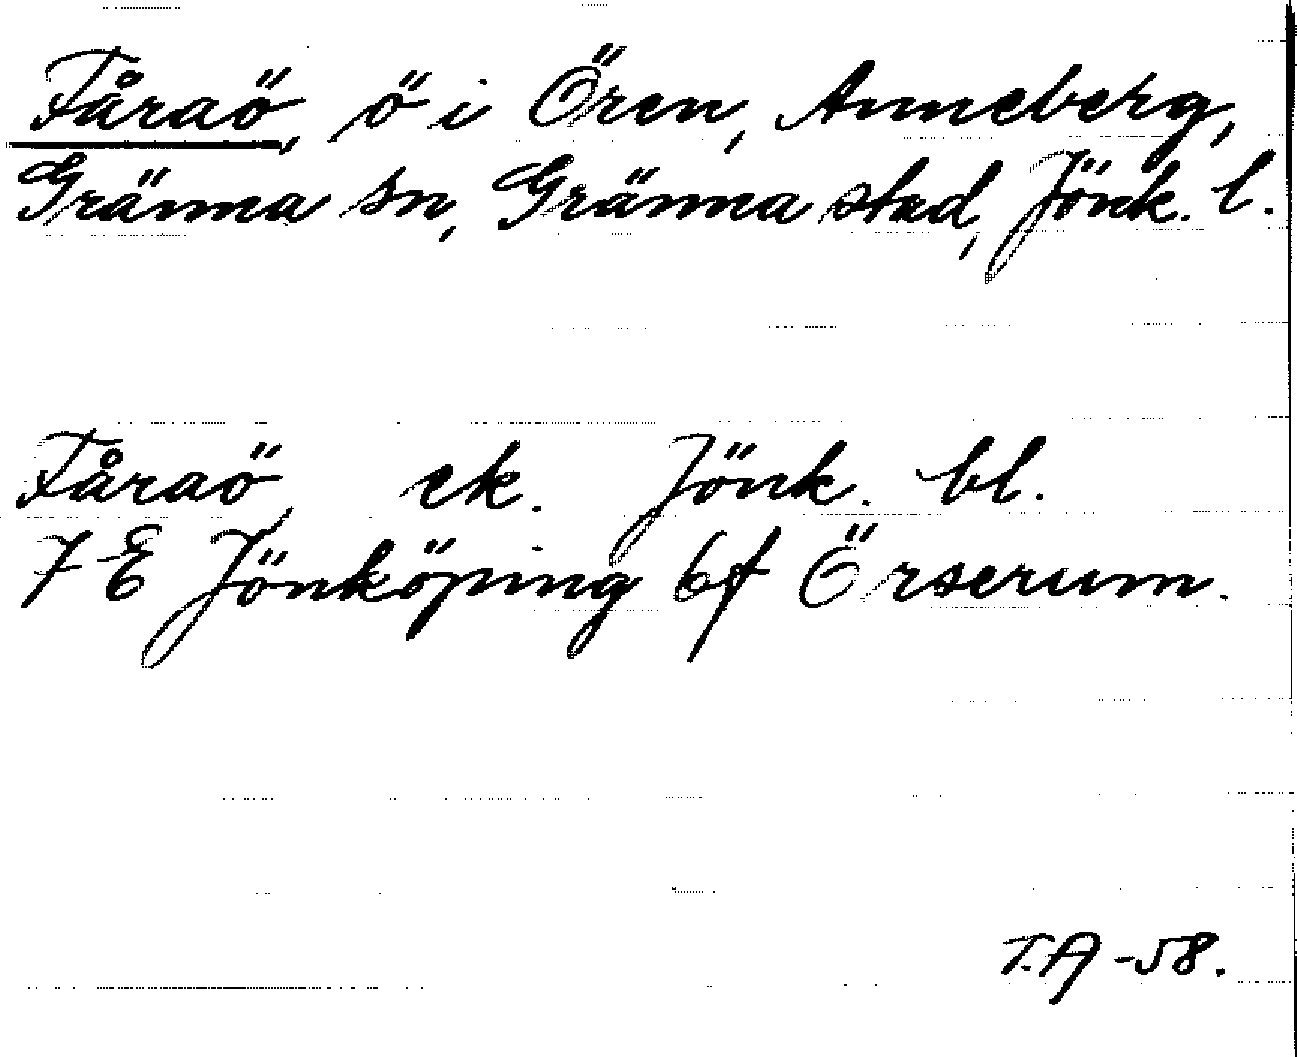 Fåraö, ö i Ören, Anneberg,
Gränna sn, Gränna stad, Jönk. l.
Fåraö, ek. Jönk. bl.
7 E Jönköping 6f Örserum.
T.A -58.